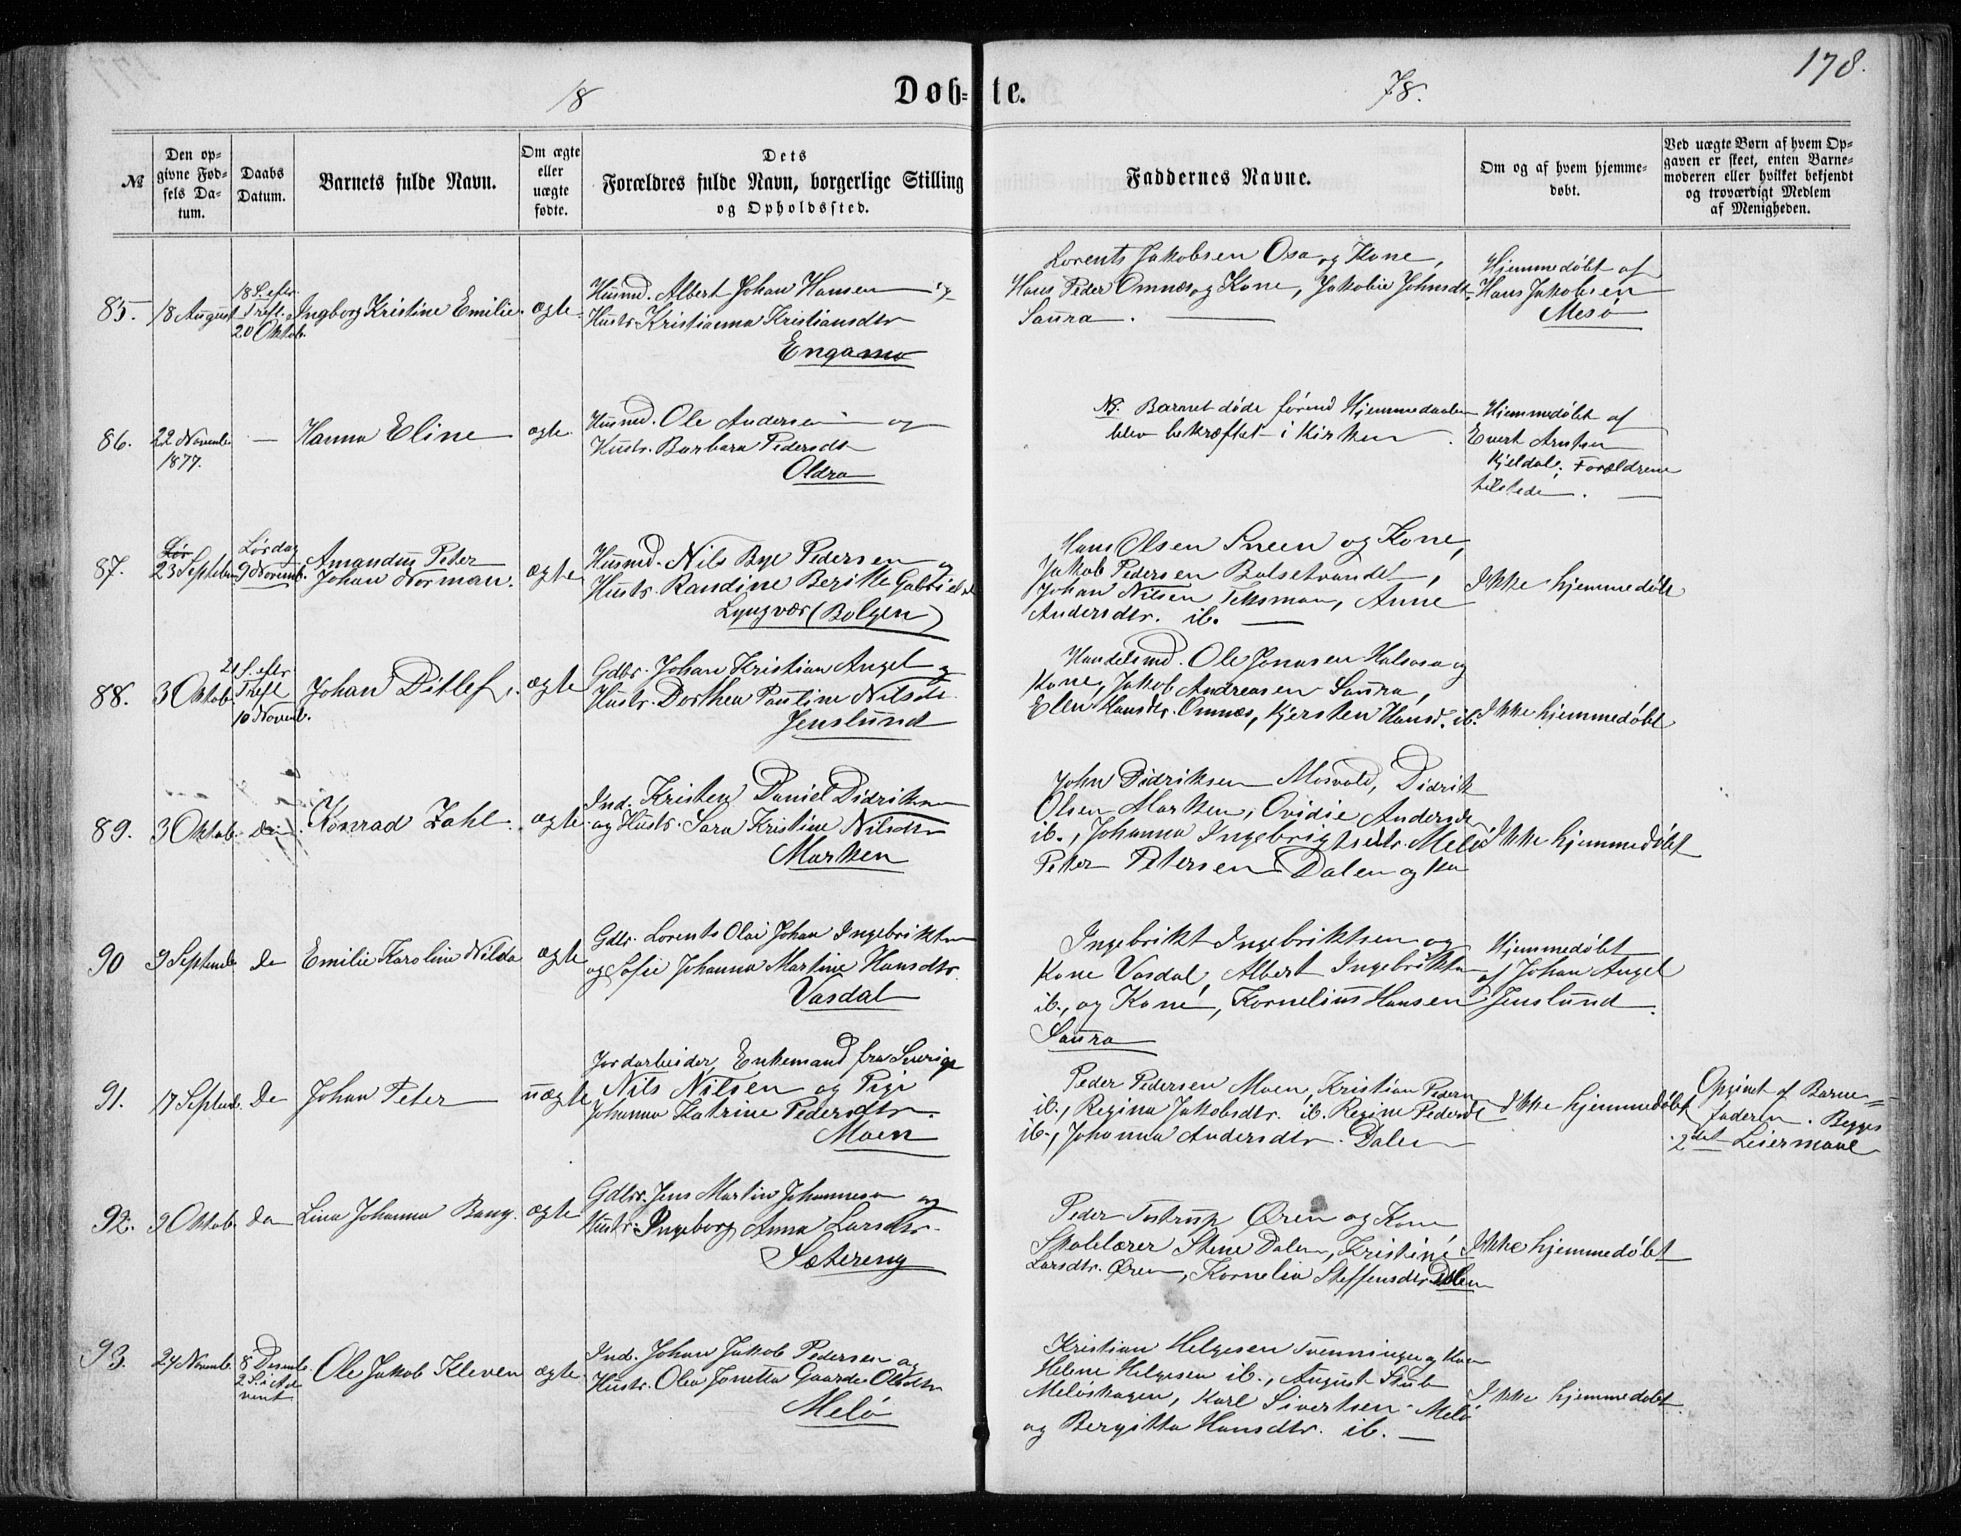 178.
18 Døb=te. 78.
№
Den op-
givne Fød-
sels Da-
tum.
Daabs
Datum.
Barnets fulde Navn.
Om ægte
eller
uægte
fødte.
Dets
Forældres fulde Navn, borgerlige Stilling
og Opholdssted.
Faddernes Navne.
Om og af hvem hjemme-
døbt.
Ved uægte Børn af hvem Op-
gaven er skeet, enten Barne-
moderen eller hvilket bekjendt
og troværdigt Medlem
af Menigheden.
85.
18 August
18 S. eftr
Trefl.
20 Oktob.
Ingborg Kristine Emilie.
ægte
Husmd. Albert Johan Hansen og
Hustr. Kristianna Kristiansdtr
Engamo
Lorents Jakobsen Osa og Kone,
Hans Peder Omnes og Kone, Jakobie Johnsdt.
Saura.
Hjemmedøbt af
Hans Jakobsen
Mesø
86.
22 Novemb.
1877.
—
Hanna Eline
ægte
Husmd. Ole Andersen og
Hustr. Barbara Pedersdt
Oldra
NB. Barnet døde førend Hjemmedaaben
blev bekræftet i Kirken.
Hjemmedøbt af
Evert Arntsen
Kjeldal. Forældrene
tilstede.
87.
23 September
Lørdag
9 Novemb.
Amandus Peter
Johan Norman.
ægte
Husmd. Nils Bye Pedersen og
Hustr. Randine Beritte Gabrielsd
Lyngvær (Bolgen)
Hans Olsen Sneen og Kone,
Jakob Pedersen Balsetvandet,
Johan Nilsen Teksmon, Anne
Andersdtr. ib.
Ikke hjemmedøbt
88.
3 Oktob.
21 S. eftr
Trefl
10 Novemb.
Johan Ditlef.
ægte
Gdbr. Johan Kristian Angel og
Hustr. Dorthea Pauline Nilsdt.
Jenslund
Handelsmd. Ole Jonasen Halsosa og
Kone, Jakob Andreasen Saura,
Elen Hansdtr. Omnes, Kjersten Hansd. ib.
Ikke hjemmedøbt
89.
3 Oktob.
do
Konrad Zahl.
ægte
Ind. Kristen Daniel Didriksen
og Hustr. Sara Kristine Nilsdtr
Marken
John Didriksen Mosvold, Didrik
Olsen Marken, Ovidie Andersdtr
ib., Johanna Ingebrigtsdtr. Melø
Peter Petersen Dalen og Ko
Ikke hjemmedøbt
90
9 Septemb.
do
Emilie Karoline Nilda
ægte
Gdbr. Lorents Olai Johan Ingebriktsen
og Sofie Johanna Martine Hansdtr.
Vasdal
Ingebrikt Ingebriktsen og
Kone Vasdal, Albert Ingebriktsen
ib., og Kone, Kornelius Hansen
Saura
Hjemmedøbt
af Johan Angel
Jenslund.
91.
17 Septemb.
do
Johan Peter
uægte
Jordarbeider, Enkemand fra Sverige
Nils Nilsen og Pige
Johanna Katrine Pedersdtr.
Moen
Peder Pedersen Moen, Kristian Pedersen
ib., Regina Jakobsdtr. ib. Regine Pedersdt
ib., Johanna Andersdtr. Dalen
Ikke hjemmedøbt
Opgivet af Barne=
faderen. Begges
2det Leiermaal
92.
9 Oktob.
do
Lina Johanna Bang.
ægte
Gdbr. Jens Martin Johannesen og
Hustr. Ingeborg Anna Larsdtr.
Sætereng
Peder Tostrup Øren og Kone
Skolelærer Stene Dalen, Kristine
Larsdtr. Øren, Kornelia Steffensdtr Dalen
Ikke hjemmedøbt
93.
24 Novemb.
8 Desemb.
2 S. i Ad
vent
Ole Jakob Kleven
ægte
Ind. Johan Jakob Pedersen og
Hustr. Olea Jonetta Gaarder Olsdtr
Melø
Kristian Helgesen Svenningen og Kone
Helene Helgesen ib., August Skub
Meløskagen, Karl Sivertsen Melø
og Bergitta Hansdtr. ib.
Ikke hjemmedøbt.